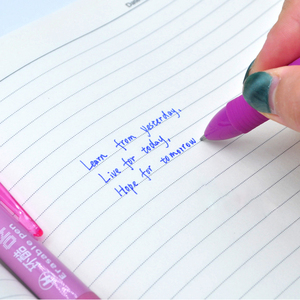 Learn from yesterday,
Live for today,
Hope for tomorrow
Erasable pen